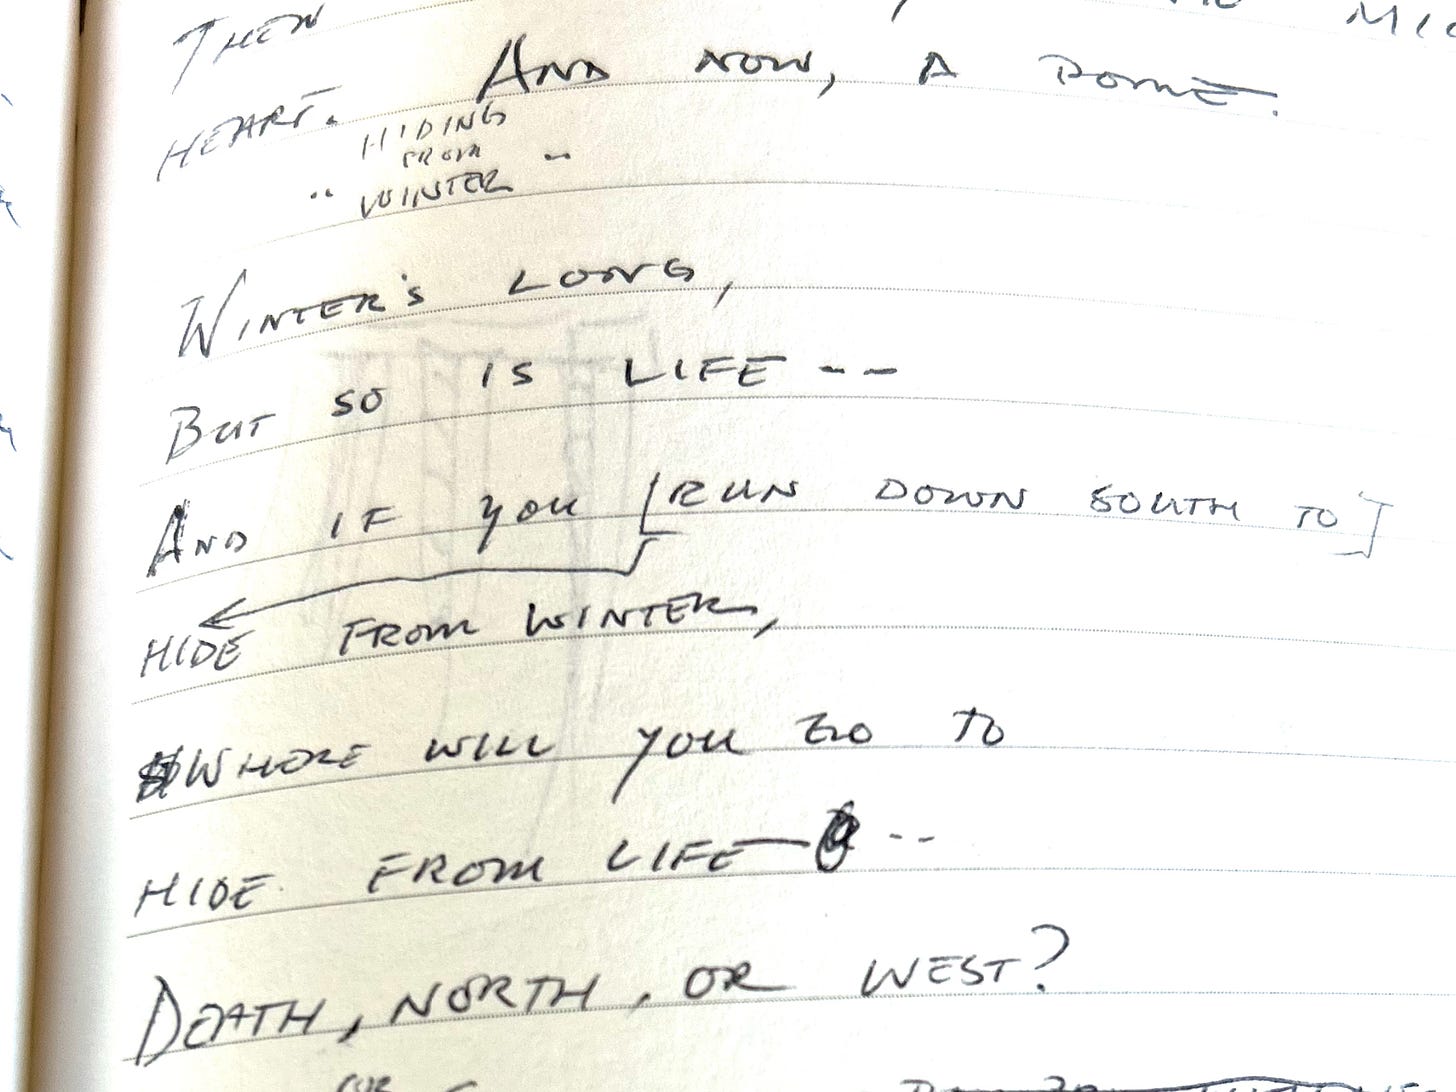 Then
HEART. AND NOW, A POME.
HIDING
FROM
" WINTER "
WINTER'S LONG,
BUT SO IS LIFE --
AND IF YOU [RUN DOWN SOUTH TO]
HIDE FROM WINTER,
WHERE WILL YOU GO TO
HIDE FROM LIFE --
DEATH, NORTH, OR WEST?